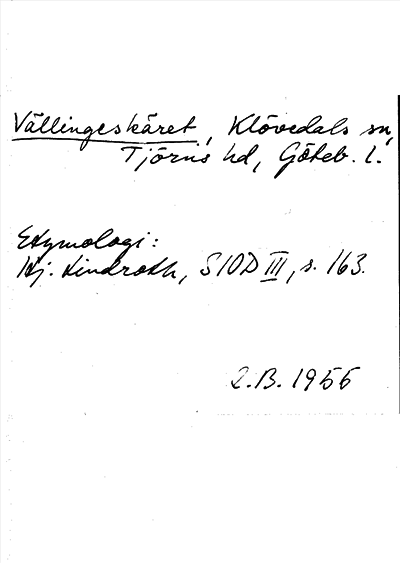 Vällingeskäret, Klövedals sn,
Tjörns hd, Göteb. l.
Etymologi:
Hj. Lindroth, SIOD III, s. 163.
R.B. 1956